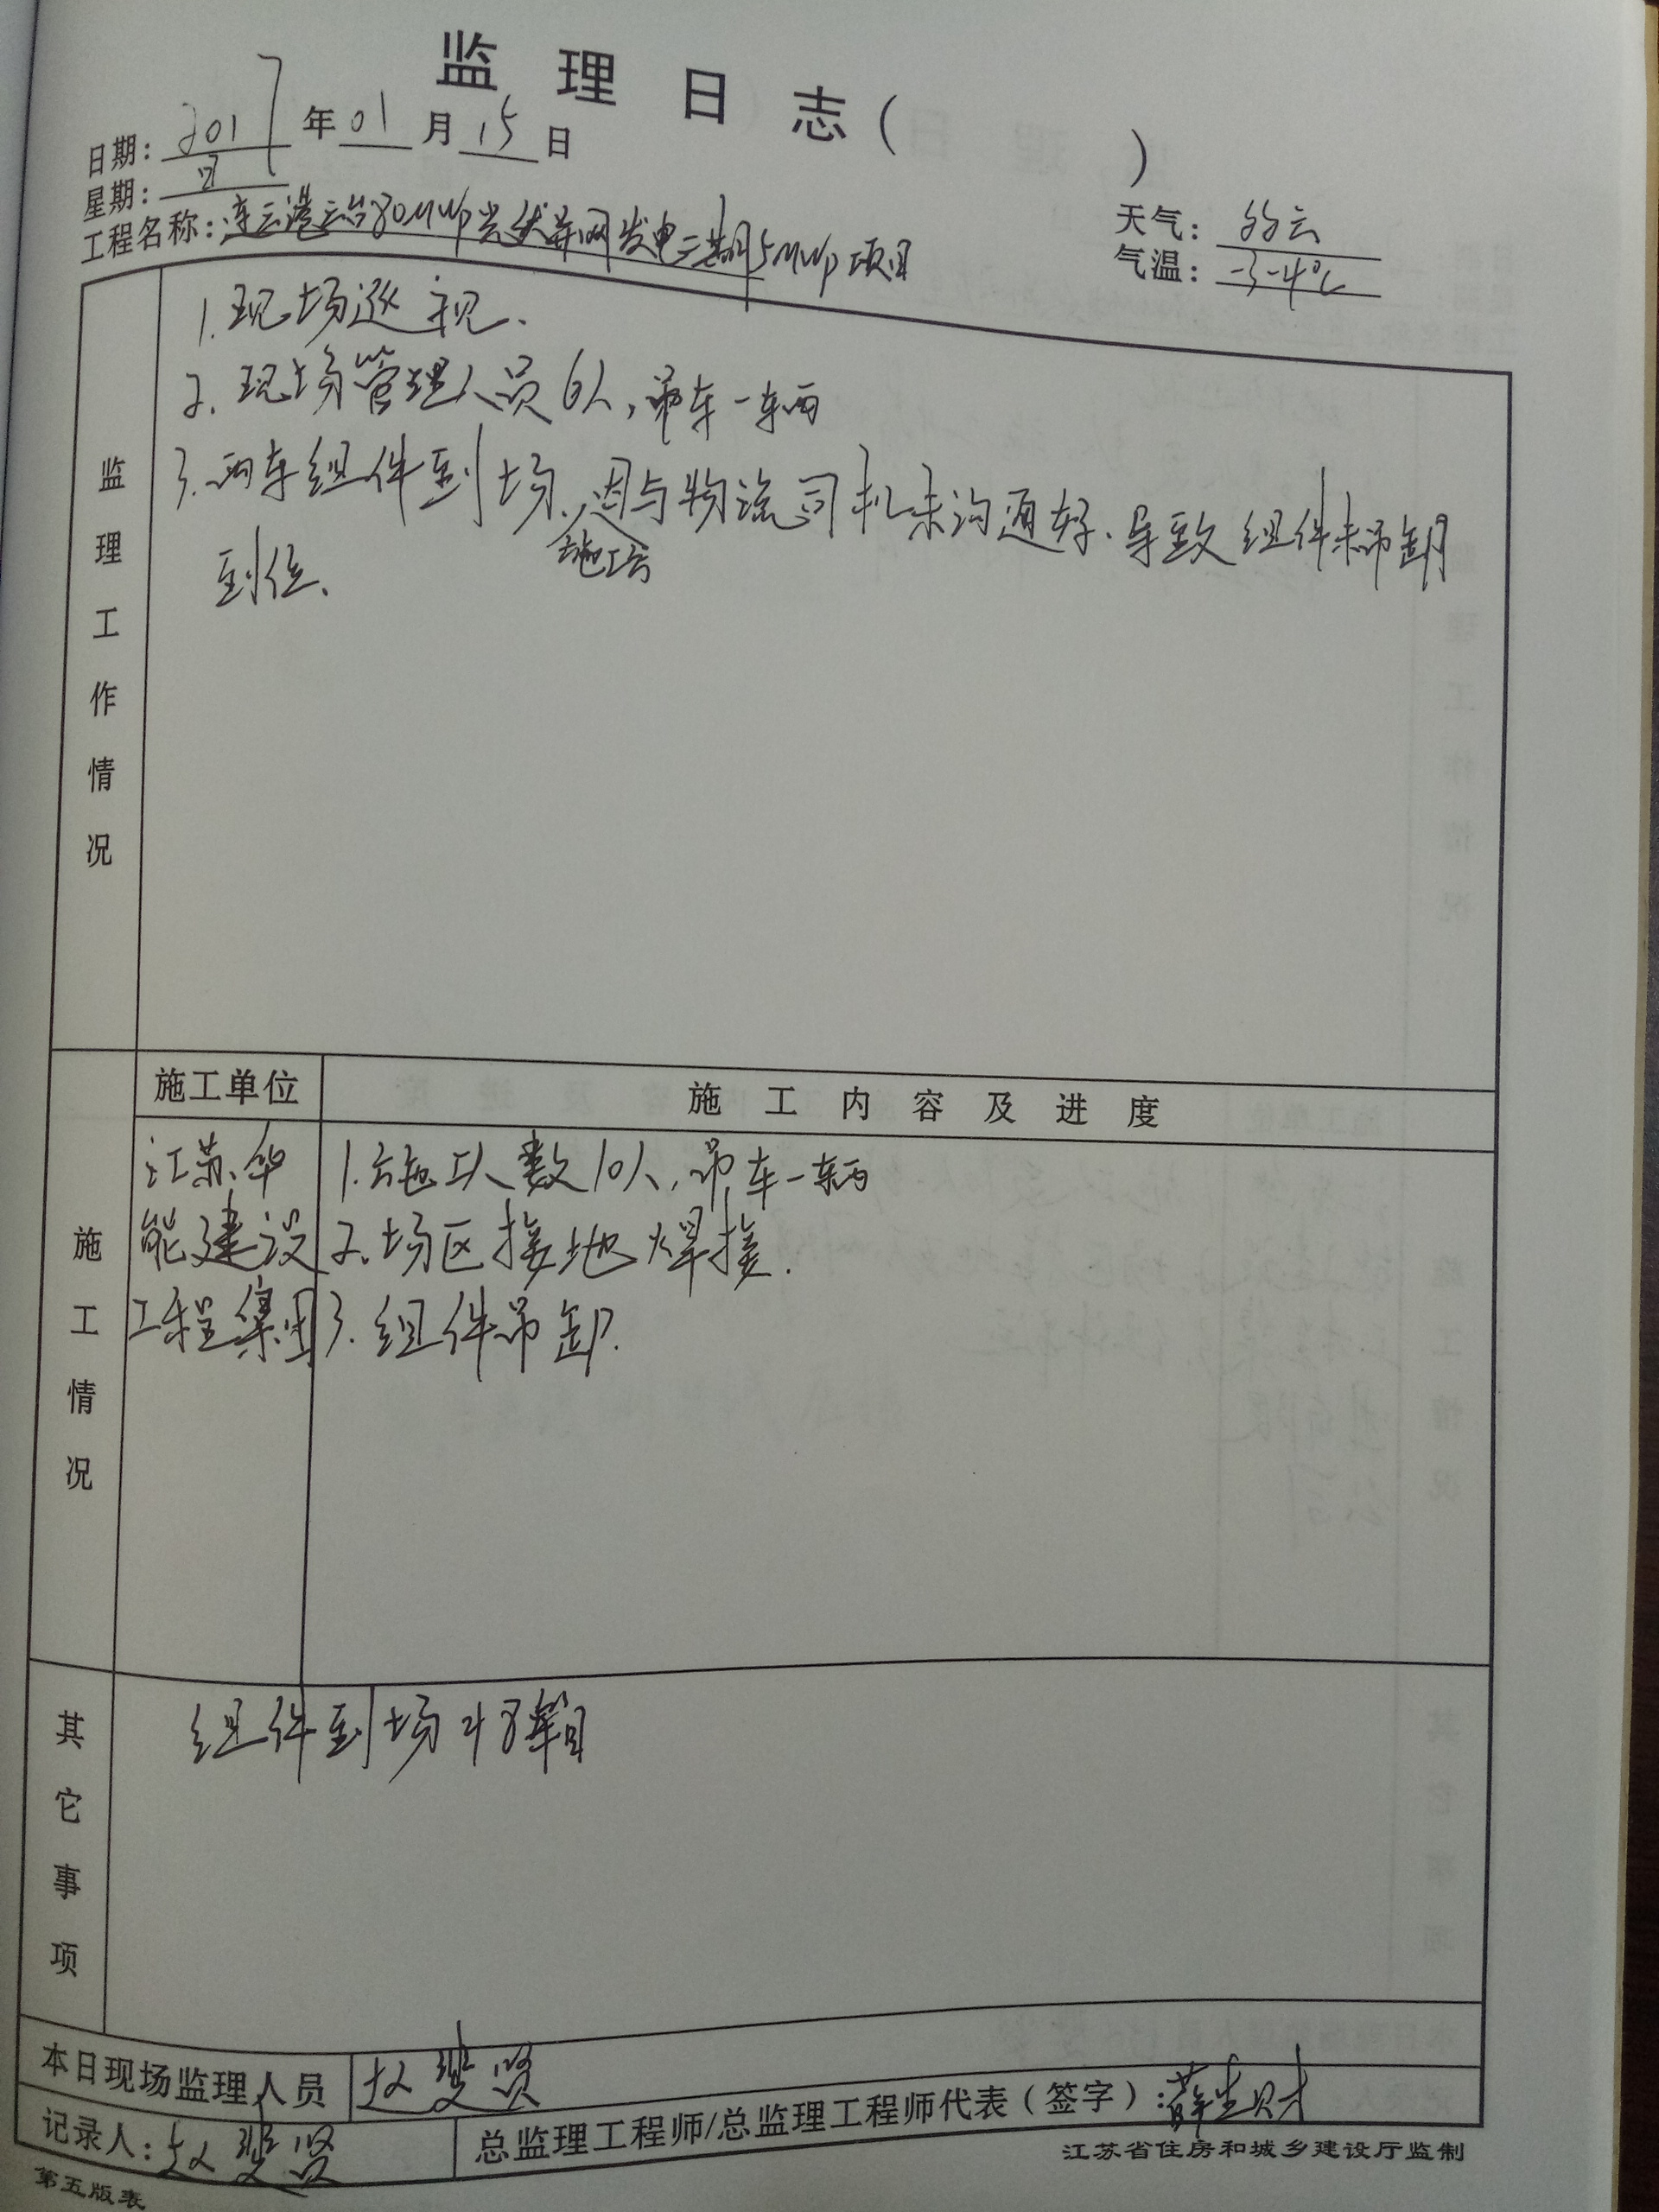 监理日志( )
日期: 2017年01月15日
星期: 日
天气: 多云
工程名称: 连云港云台80MWp光伏并网发电二期5MWp项目
气温: -3-4℃
监理工作情况
1.现场巡视、
2.现场管理人员6人,吊车一辆
3.两车组件到场、因与物流司机未沟通好、导致组件未吊卸
施工方
到位、
施工单位 施工内容及进度
施工情况
江苏华 1.施工人数10人,吊车一辆
能建设 2.场区接地焊接.
工程集团 3.组件吊卸.
其它事项
组件到场28箱
本日现场监理人员 赵斐贤
记录人: 赵斐贤 总监理工程师/总监理工程师代表(签字): 薛生财
江苏省住房和城乡建设厅监制
第五版表